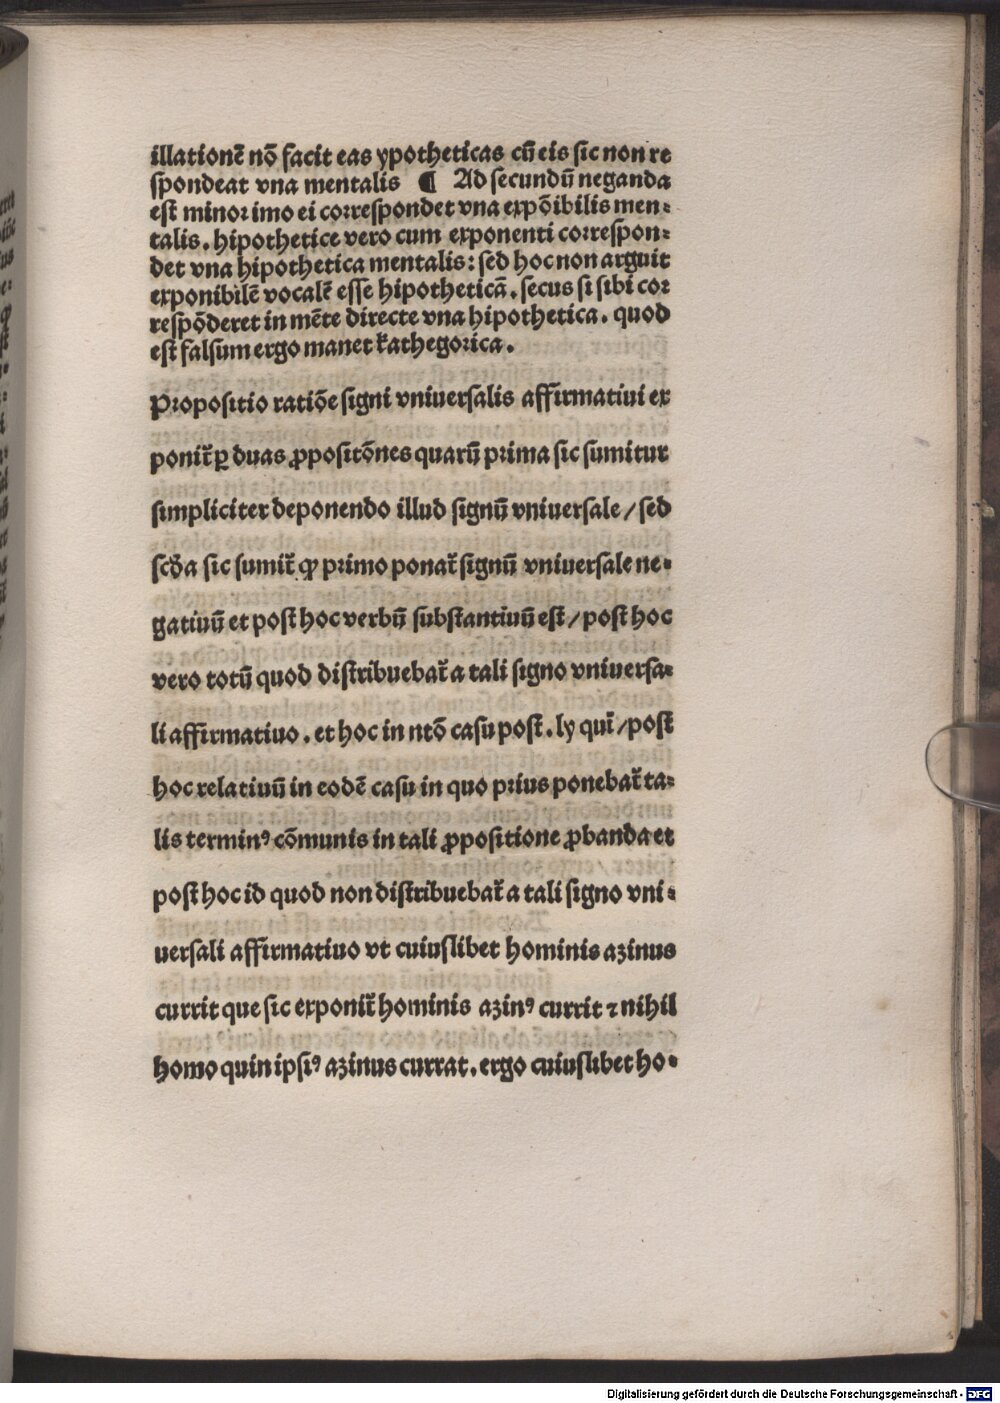 illationē nō facit eas ypotheticas cū eis sic non re
spondeat vna mentalis ¶ Ad secundū neganda
est minor imo ei correspondet vna expōibilis men-
talis. hipothetice vero cum exponenti correspon-
det vna hipothetica mentalis: sed hoc non arguit
exponibilē vocalē esse hipotheticā. secus si sibi cor
respōderet in mēte directe vna hipothetica. quod
est falsum ergo manet kathegorica.
Propositio ratiōe signi vniuersalis affirmatiui ex
ponit᷑ ꝑ duas ꝓpositōnes quarū prima sic sumitur
simpliciter deponendo illud signū vniuersale/ sed
scḋa sic sumit᷑ ꝙ primo ponat᷑ signū vniuersale ne-
gatiuū et post hoc verbū substantiuū est/ post hoc
vero totū quod distribuebat᷑ a tali signo vniuersa-
li affirmatiuo. et hoc in ntō casu post. ly quī/ post
hoc relatiuū in eodē casu in quo prius ponebat᷑ ta-
lis terminꝰ cōmunis in tali ꝓpositione ꝓbanda et
post hoc id quod non distribuebat᷑ a tali signo vni-
uersali affirmatiuo vt cuiuslibet hominis azinus
currit que sic exponit᷑ hominis azinꝰ currit ⁊ nihil
homo quin ipsiꝰ azinus currat. ergo cuiuslibet ho-
Digitalisierung gefördert durch die Deutsche Forschungsgemeinschaft - DFG